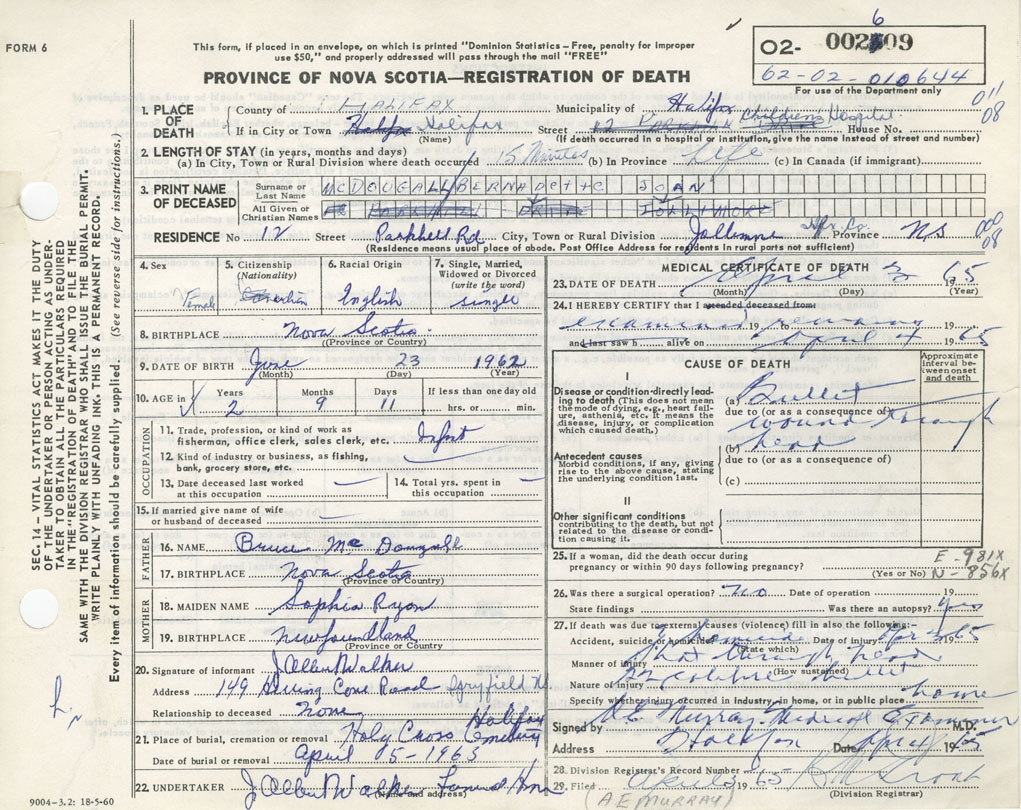 FORM 6
This form, if placed in an envelope, on which is printed "Dominion Statistics — Free, penalty for improper
use $50," and properly addressed will pass through the mail "FREE"
PROVINCE OF NOVA SCOTIA—REGISTRATION OF DEATH
6
O2- 002 09
62-02-010644
For use of the Department only
011
08
1. PLACE OF DEATH
County of HALIFAX Municipality of Halifax Children's Hospital
If in City or Town Halifax Halifax Street 12 PARKHILL House No.
(Name) (If death occurred in a hospital or institution, give the name instead of street and number)
2. LENGTH OF STAY (in years, months and days)
(a) In City, Town or Rural Division where death occurred 15 Minutes (b) In Province Life (c) In Canada (if immigrant)
3. PRINT NAME OF DECEASED
Surname or Last Name MCDOUGALL/BERNADETTE JOAN
All Given or Christian Names
RESIDENCE No 12 Street Parkhill Rd City, Town or Rural Division Jollimore Hfx. Co. Province N S
000
08
(Residence means usual place of abode. Post Office Address for residents in rural parts not sufficient)
4. Sex 5. Citizenship (Nationality) 6. Racial Origin 7. Single, Married, Widowed or Divorced (write the word)
Female Canadian English single
8. BIRTHPLACE Nova Scotia
(Province or Country)
9. DATE OF BIRTH June 23 1962
(Month) (Day) (Year)
10. AGE in Years Months Days If less than one day old
2 9 11 hrs. or min.
OCCUPATION
11. Trade, profession, or kind of work as fisherman, office clerk, sales clerk, etc. Infant
12. Kind of industry or business, as fishing, bank, grocery store, etc.
13. Date deceased last worked at this occupation
14. Total yrs. spent in this occupation
15. If married give name of wife or husband of deceased
FATHER
16. NAME Bruce McDougall
17. BIRTHPLACE Nova Scotia
(Province or Country)
MOTHER
18. MAIDEN NAME Sophia Ryan
19. BIRTHPLACE Newfoundland
(Province or Country
20. Signature of informant J Albert Walker
Address 149 Herring Cove Road Spryfield NS
Relationship to deceased none
21. Place of burial, cremation or removal Holy Cross Cemetery Halifax
Date of burial or removal April 05-1965
22. UNDERTAKER J Albert Walker Funeral Home
(Name and address)
9004-3.2: 18-5-60
MEDICAL CERTIFICATE OF DEATH
23. DATE OF DEATH April 3 65
(Month) (Day) (Year)
24. I HEREBY CERTIFY that I attended deceased from:
examined 19 to remains 19
and last saw h alive on April 4 1965
CAUSE OF DEATH
Approximate interval between onset and death
I
Disease or condition directly leading to death (This does not mean the mode of dying, e.g., heart failure, asthenia, etc. It means the disease, injury, or complication which caused death.)
(a) Bullet
due to (or as a consequence of)
wound through
(b) head
Antecedent causes
Morbid conditions, if any, giving rise to the above cause, stating the underlying condition last.
due to (or as a consequence of)
(c)
II
Other significant conditions
contributing to the death, but not related to the disease or condition causing it.
25. If a woman, did the death occur during
pregnancy or within 90 days following pregnancy?
(Yes or No)
E-981X
N-856X
26. Was there a surgical operation? No Date of operation 19
State findings Was there an autopsy? Yes
27. If death was due to external causes (violence) fill in also the following:-
Accident, suicide or homicide? Homicide Date of injury Apr 3 65
(State which)
Manner of injury Shot through head
(How sustained)
Nature of injury 22 calibre bullet
Specify whether injury occurred in Industry, in home, or in public place home
Signed by A E Murray Medical Examiner M.D.
Address Halifax Date Apr 4 1965
28. Division Registrar's Record Number
29. Filed 65
(Division Registrar)
(A E MURRAY)
SEC. 14 — VITAL STATISTICS ACT MAKES IT THE DUTY
OF THE UNDERTAKER OR PERSON ACTING AS UNDER-
TAKER TO OBTAIN ALL THE PARTICULARS REQUIRED
IN THE "REGISTRATION OF DEATH" AND TO FILE THE
SAME WITH THE DIVISION REGISTRAR WHO SHALL ISSUE THE BURIAL PERMIT.
WRITE PLAINLY WITH UNFADING INK. THIS IS A PERMANENT RECORD.
Every item of information should be carefully supplied. (See reverse side for instructions.)